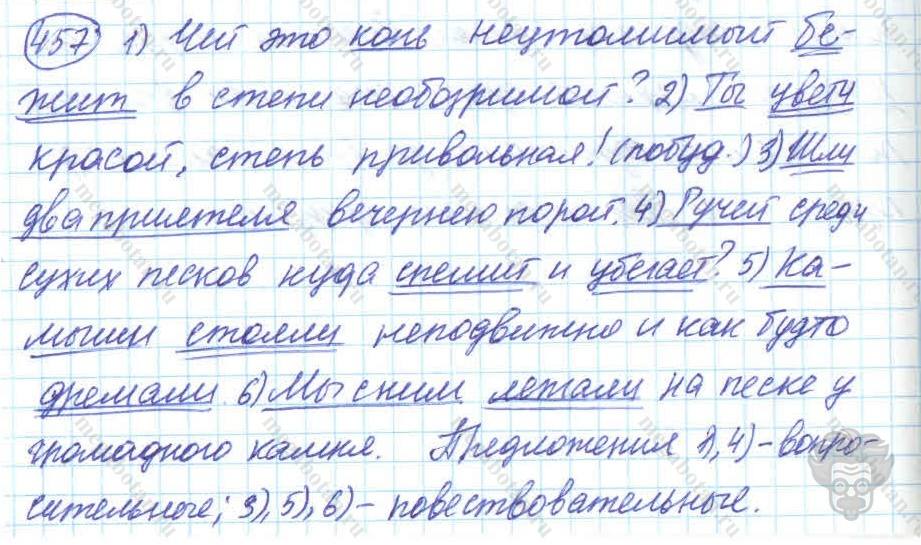 457 1) Чей это конь неутомимый бе-
жит в степи необозримой? 2) Ты цвети
красой, степь привольная! (побуд.) 3) Шли
два приятеля вечернею порой. 4) Ручей среди
сухих песков куда спешит и убегает? 5) Ка-
мыши стояли неподвижно и как будто
дремали. 6) Мы с ним лежали на песке у
громадного камня. Предложения 1), 4) – вопро-
сительные; 3), 5), 6) – повествовательные.